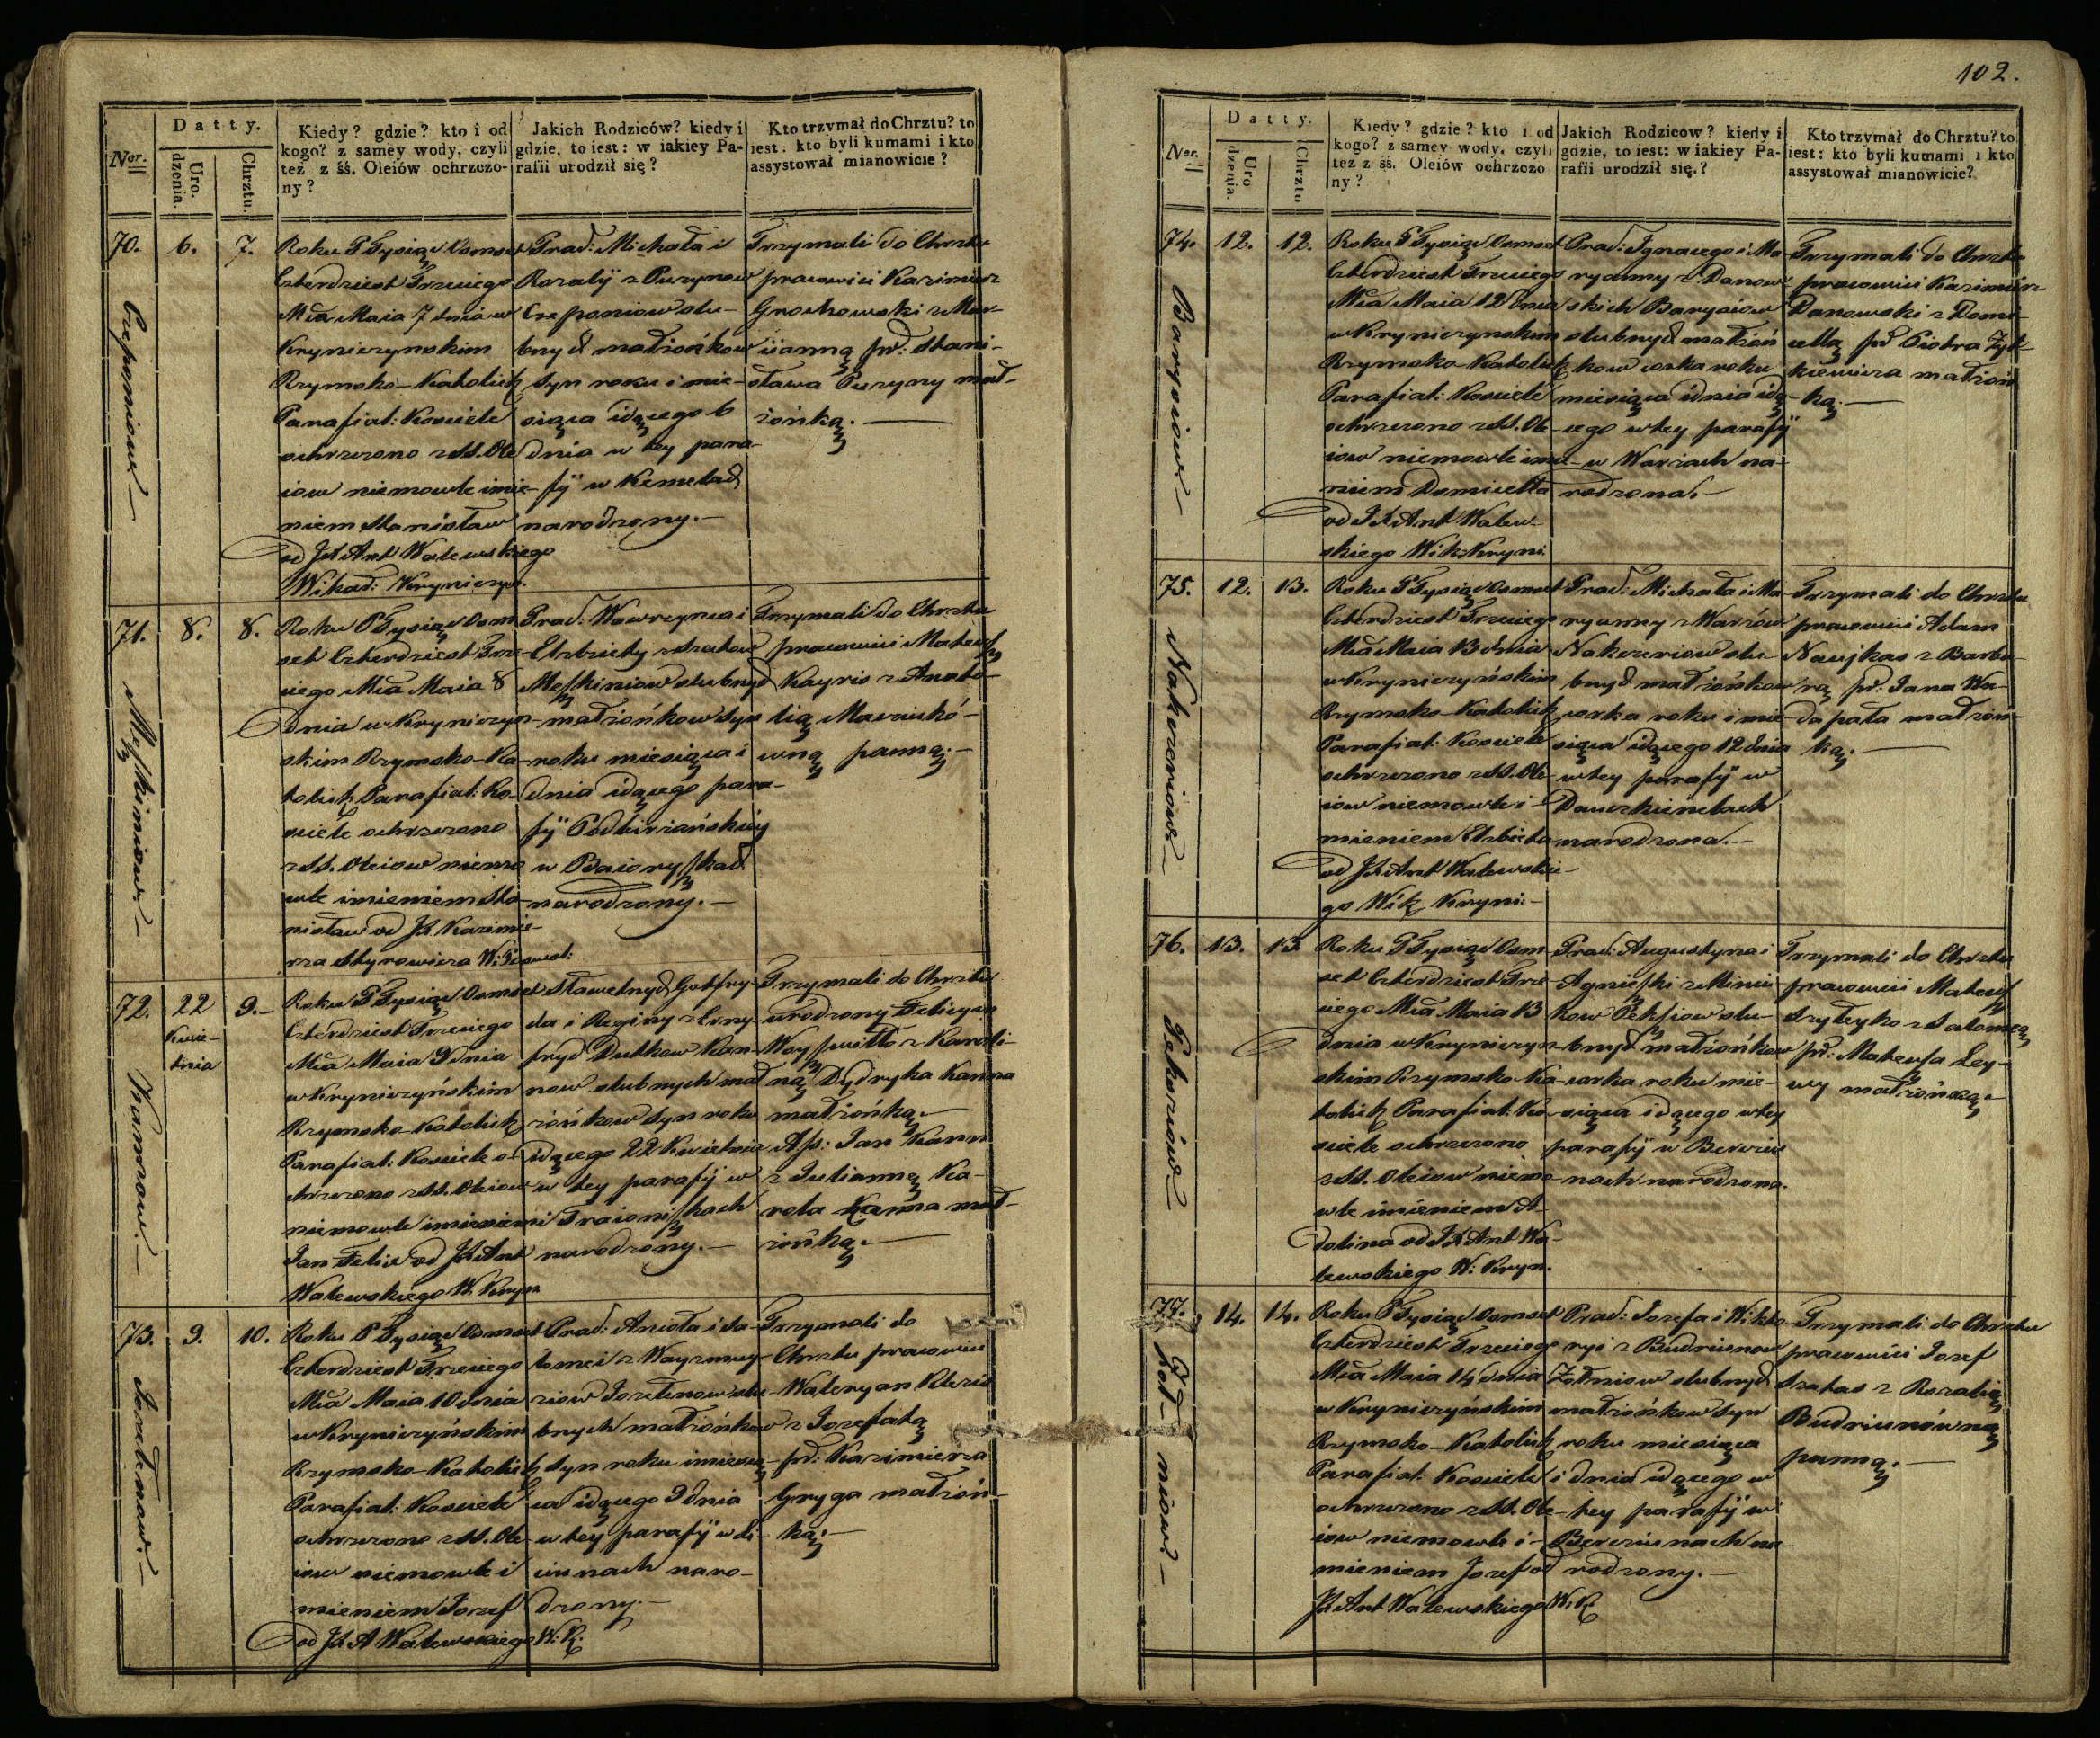 102.
Datty.
Ner.
Uro.
dzenia.
Chrztu.
Kiedy? gdzie? kto i od
kogo? z samey wody, czyli
też z śś. Oleiów ochrzczo-
ny?
Jakich Rodziców? kiedy i
gdzie, to iest: w iakiey Pa-
rafii urodził się?
Kto trzymał do Chrztu? to
iest: kto byli kumami i kto
assystował mianowicie?
70.
6.
7.
Czeponiow
Roku P Tysiąc Osmset
Czterdziest Trzeciego
Mca Maia 7 dnia w
Kryniczynskim
Rzymsko-Katolick
Parafial: Kosciele
ochrzczono z SS. Ole
iow niemowle imie-
niem Stanisław
od JX Ant Walewskiego
Wikad: Kryniczyn.
Prac: Michała i
Rozalÿ z Puzynow
Czeponiow slu-
bnych małżonkow
syn roku i mie-
siąca idącego 6
dnia w tey para-
fÿ w Kemelach
narodzony.-
Trzymali do Chrztu
pracowici Kazimierz
Grochowski z Mar-
iianną pr: Stani-
sława Puzyny mał-
żonką.
71.
8.
8.
Meszkiniow
Roku P Tysiąc Osm
set Czterdziest Trze-
ciego Mca Maia 8
dnia w Kryniczyn-
skim Rzymsko-Ka-
tolick Parafial: Ko-
sciele ochrzczono
z SS. Oleiow niemo
wle imieniem Sta-
nisław od JX Kazimie-
rza Styrowicza
Prac: Wawrzynca i
Elzbiety z Szatow
Meszkiniow slubnych
małżonkow syn
roku miesiąca i
dnia idącego para-
fÿ Podbirżańskiey
w Baioryszkach
narodzony.-
Trzymali do Chrztu
pracowici Mateusz
Kayris z Anato-
lią
wną panną.-
72.
22
Kwie-
tnia
9.-
Kannow.-
Roku P Tysiąc Osmset
Czterdziest Trzeciego
Mca Maia 9 dnia
w Krynicyńskim
Rzymsko-Katolick
Parafial: Kosciele o-
chrzczono z SS. Oleiow
niemowle imieniem
Jan Felix od JX Ant
Walewskiego W. Kryn
Sławetnych Gotfry-
da i Reginy z Erny-
frych Dutkow Kan-
now slubnych mał
żonkow syn roku
idącego 22 Kwietnia
w tey parafÿ w
Traioniszkach
narodzony.-
Trzymali do Chrztu
urodzony Felicyan
Woyszwiłło z Karoli-
ną Dydryka Kanna
małżonką.-
Ass: Jan Kann
z Julianną Ka-
rola Kanna mał-
żonką.
73.
9.
10.
Jozelunow.-
Roku P Tysiąc Osmset
Czterdziest Trzeciego
Mca Maia 10 dnia
w Krynicyńskim
Rzymsko-Katolick
Parafial: Kosciele
ochrzczono z SS. Ole-
iow niemowle i
mieniem Jozef
od JX A Walewskiego W: K.
Prac: Anioła i Sa-
lomei z
brych małżonkow
syn roku i miesią-
ca idącego 9 dnia
w tey parafÿ w Li-
ciunach naro-
dzony.-
Trzymali do
Chrztu pracowici
Waleryan
z Jozefatą
pr: Kazimierza
Gryga małżon-
ką.-
Datty.
Ner.
Uro
dzenia.
Chrztu
Kiedy? gdzie? kto i od
kogo? z samey wody, czyli
też z śś. Oleiów ochrzczo
ny?
Jakich Rodziców? kiedy i
gdzie, to iest: w iakiey Pa-
rafii urodził się.?
Kto trzymał do Chrztu? to
iest: kto byli kumami i kto
assystował mianowicie?
74.
12.
12.
Barysiow
Roku P Tysiąc Osmset
Czterdziest Trzeciego
Mca Maia 12 dnia
w Krynicyńskim
Rzymsko-Katolick
Parafial: Kosciele
ochrzczono z SS. Ole-
iow niemowle imie-
niem Domicella
od JX Ant Walew-
skiego Wik: Kryni.
Prac: Ignacego i Ma
ryanny z Danow
skich Barysiow
slubnych małżon
kow corka roku
miesiąca i dnia idą-
cego w tey parafÿ
w Warżach na-
rodzona.-
Trzymali do Chrztu
pracowici Kazimierz
Danowski z Domi-
cellą pr: Piotra Żyt-
kiewicza małżon
ką.-
75.
12.
13.
Nakuzeniow
Roku P Tysiąc Osmset
Czterdziest Trzeciego
Mca Maia 13 dnia
w Krynicyńskim
Rzymsko-Katolick
Parafial: Kosciele
ochrzczono z SS. Ole-
iow niemowle i-
mieniem Elzbieta
od JX Ant Walewskie-
go Wik Kryni.-
Prac: Michała i Ma-
ryanny z Warżow
slu-
bnych małżonkow
corka roku i mie-
siąca idącego 12 dnia
w tey parafÿ w
Dauszkienelach
narodzona.-
Trzymali do Chrztu
pracowici Adam
Naujkas z Barba-
rą pr: Jana Wa-
dapała małżon-
ką.-
76.
13.
13
Pekszów
Roku P Tysiąc Osm-
set Czterdziest Trze-
ciego Mca Maia 13
dnia w Krynicyn-
skim Rzymsko-Ka-
tolick Parafial: Ko-
sciele ochrzczono
z SS. Oleiow niemo
wle imieniem A-
dolina od JX Ant Wa-
lewskiego W: Kryn.
Prac: Augustyna i
Agnieszki z Minci-
kow Pekszow slu-
bnych małżonkow
corka roku mie-
siąca idącego w tey
parafÿ w Berciu
nach narodzona.
Trzymali do Chrztu
pracowici Mateusz
Szyleyko z Salomeą
pr: Mateusza Ley-
wy małżonką.-
77.
14.
14.
Żoł-niow.-
Roku P Tysiąc Osmset
Czterdziest Trzeciego
Mca Maia 14 dnia
w Krynicyńskim
Rzymsko-Katolick
Parafial: Kosciele
ochrzczono z SS. Ole-
iow niemowle i-
mieniem Jozef od
JX Ant Walewskiego W.K
Prac: Jozefa i Wikto-
ryi z Budriunow
Żołniow slubnych
małżonkow syn
roku miesiąca
i dnia idącego w
tey parafÿ w
Berciunach na
rodzony.-
Trzymali do Chrztu
pracowici Jozef
Szatas z Rozalią
Budriunówną
panną.-